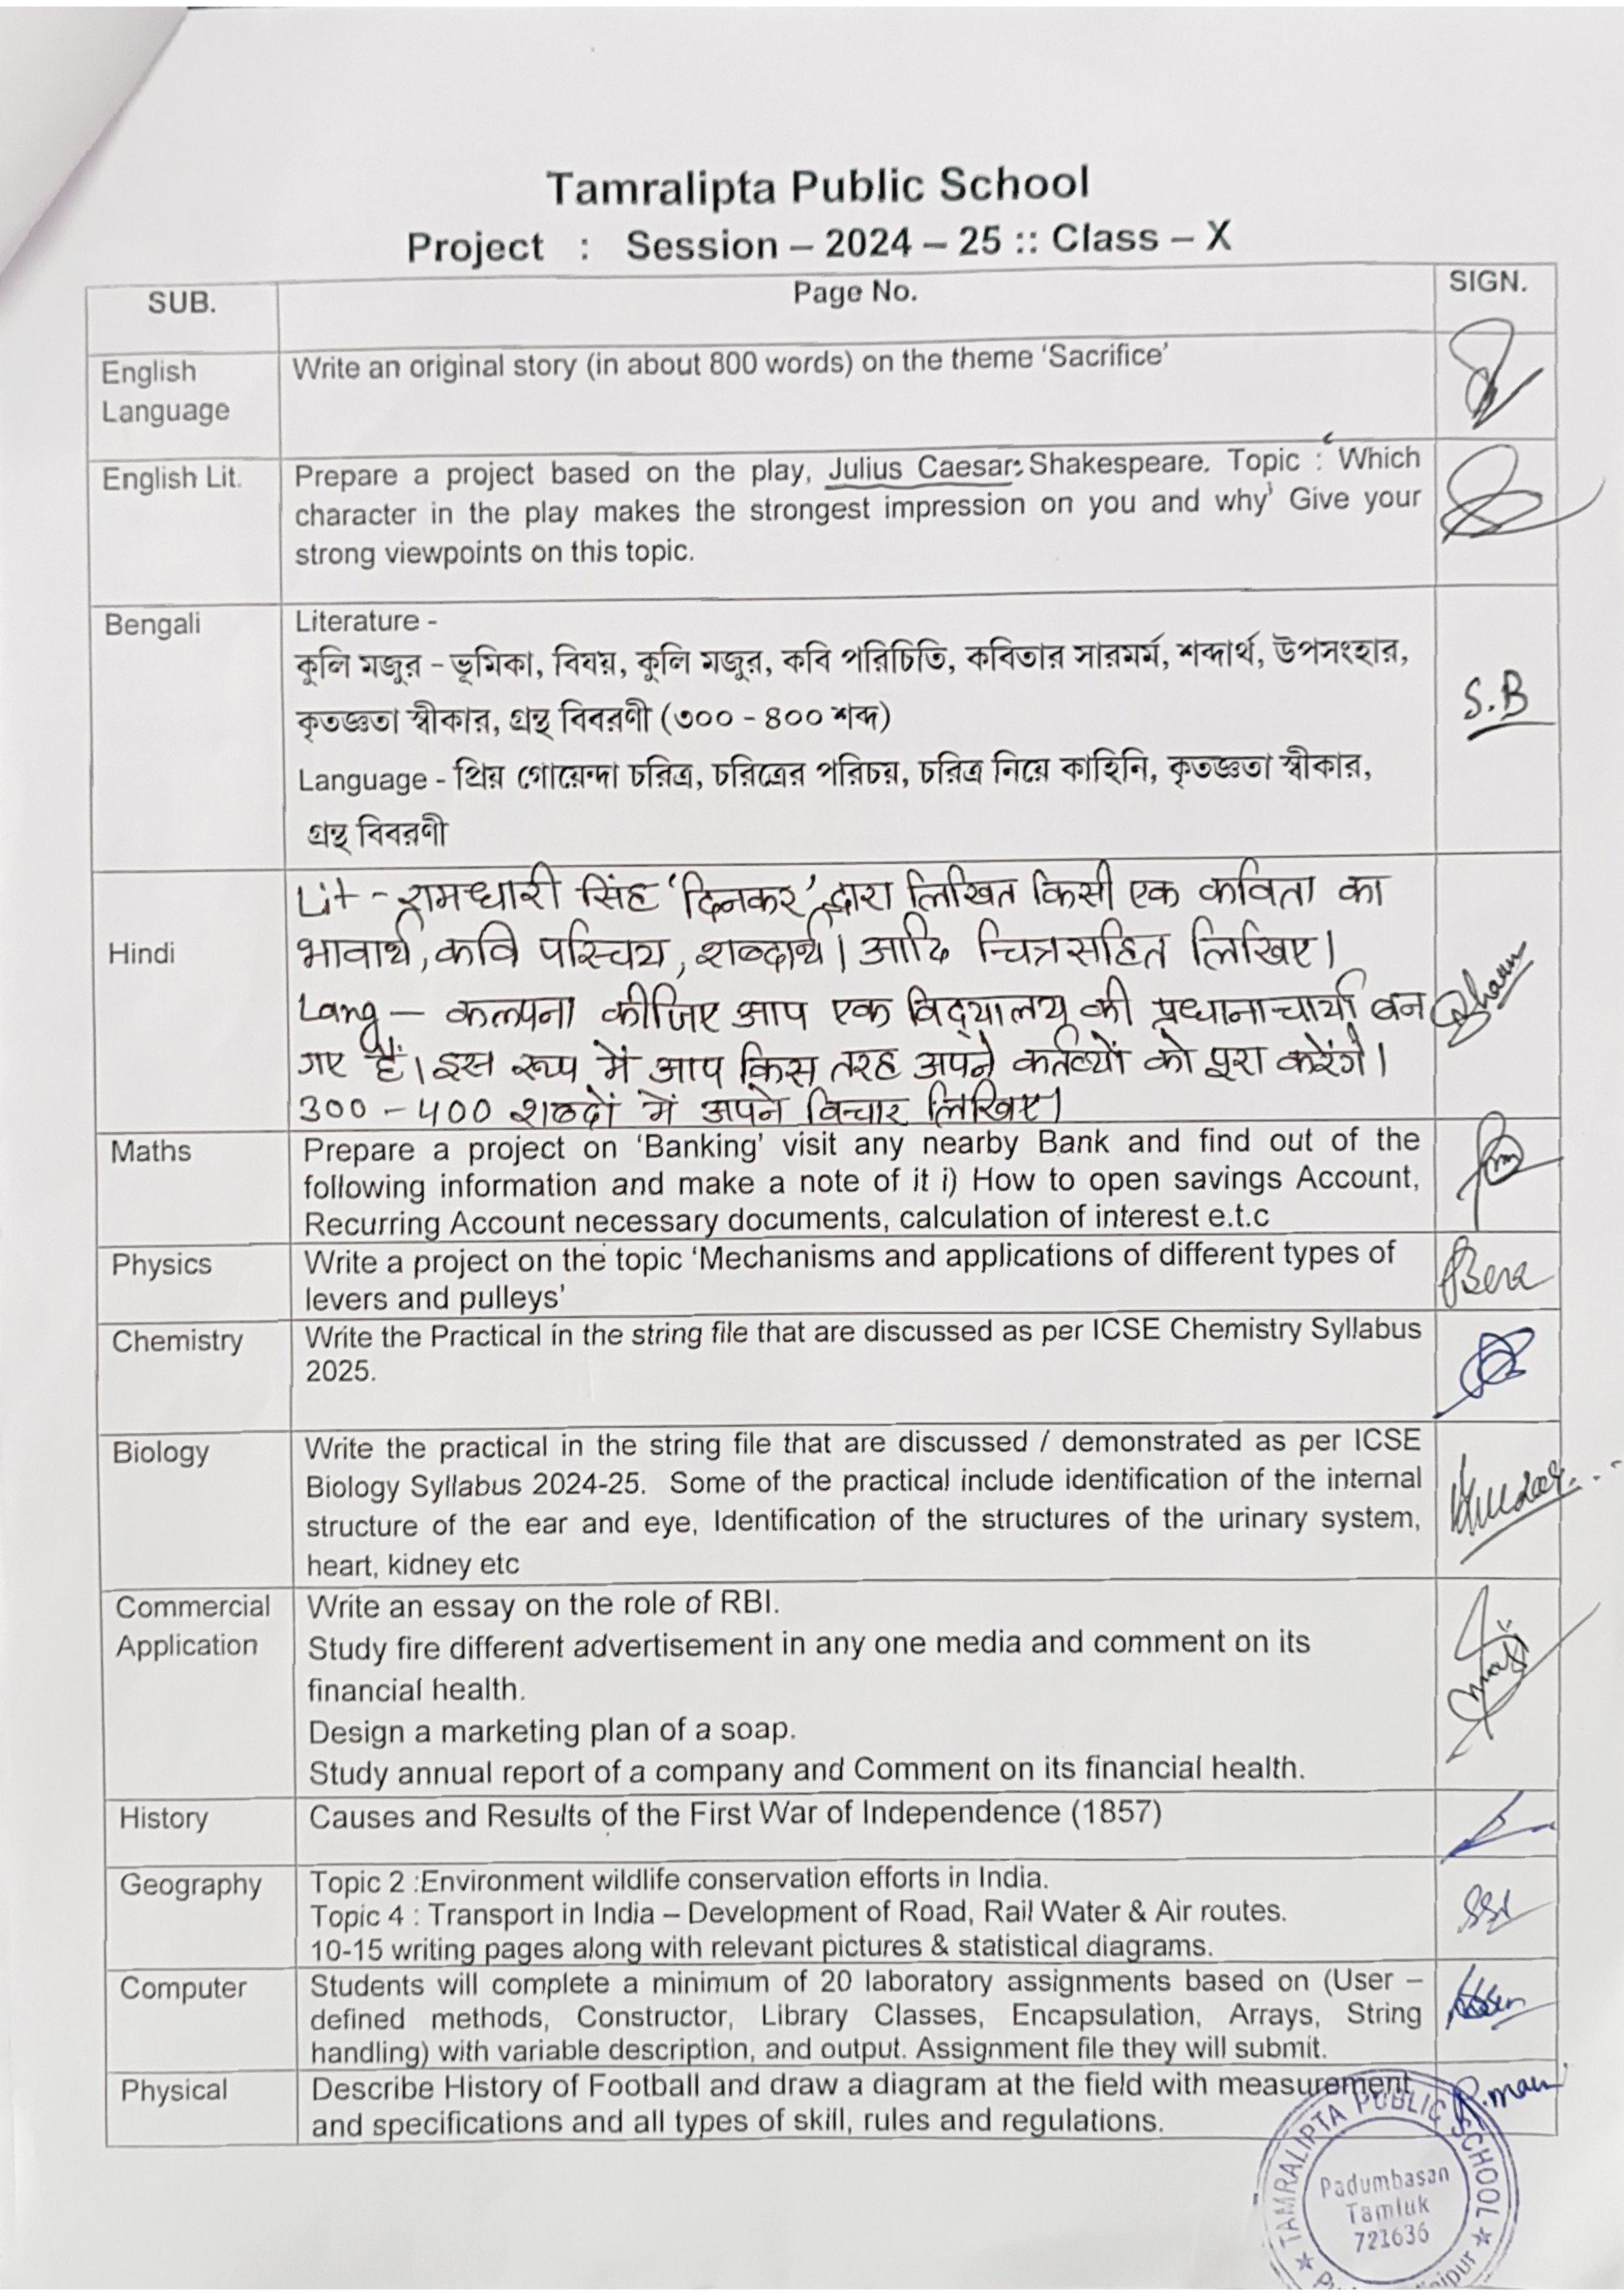 Tamralipta Public School
Project : Session – 2024 – 25 :: Class – X
SUB. Page No. SIGN.
English Language
Write an original story (in about 800 words) on the theme ‘Sacrifice’
English Lit.
Prepare a project based on the play, Julius Caesar: Shakespeare. Topic : ‘Which
character in the play makes the strongest impression on you and why’ Give your
strong viewpoints on this topic.
Bengali
Literature -
কুলি মজুর - ভূমিকা, বিষয়, কুলি মজুর, কবি পরিচিতি, কবিতার সারমর্ম, শব্দার্থ, উপসংহার,
কৃতজ্ঞতা স্বীকার, গ্রন্থ বিবরণী (৩০০ - ৪০০ শব্দ)
Language - প্রিয় গোয়েন্দা চরিত্র, চরিত্রের পরিচয়, চরিত্র নিয়ে কাহিনি, কৃতজ্ঞতা স্বীকার,
গ্রন্থ বিবরণী
S.B
Hindi
Lit - रामधारी सिंह ‘दिनकर’ द्वारा लिखित किसी एक कविता का
भावार्थ, कवि परिचय, शब्दार्थ। आदि चित्रसहित लिखिए।
Lang – कल्पना कीजिए आप एक विद्यालय की प्रधानाचार्या बन
गए हैं। इस रूप में आप किस तरह अपने कर्तव्यों को पूरा करेंगे।
300 – 400 शब्दों में अपने विचार लिखिए।
Maths
Prepare a project on ‘Banking’ visit any nearby Bank and find out of the
following information and make a note of it i) How to open savings Account,
Recurring Account necessary documents, calculation of interest e.t.c
Physics
Write a project on the topic ‘Mechanisms and applications of different types of
levers and pulleys’
Bera
Chemistry
Write the Practical in the string file that are discussed as per ICSE Chemistry Syllabus
2025.
Biology
Write the practical in the string file that are discussed / demonstrated as per ICSE
Biology Syllabus 2024-25. Some of the practical include identification of the internal
structure of the ear and eye, Identification of the structures of the urinary system,
heart, kidney etc
Commercial
Application
Write an essay on the role of RBI.
Study fire different advertisement in any one media and comment on its
financial health.
Design a marketing plan of a soap.
Study annual report of a company and Comment on its financial health.
History
Causes and Results of the First War of Independence (1857)
Geography
Topic 2 :Environment wildlife conservation efforts in India.
Topic 4 : Transport in India – Development of Road, Rail Water & Air routes.
10-15 writing pages along with relevant pictures & statistical diagrams.
Computer
Students will complete a minimum of 20 laboratory assignments based on (User –
defined methods, Constructor, Library Classes, Encapsulation, Arrays, String
handling) with variable description, and output. Assignment file they will submit.
Physical
Describe History of Football and draw a diagram at the field with measurement
and specifications and all types of skill, rules and regulations.
TAMRALIPTA PUBLIC SCHOOL
Padumbasan
Tamluk
721636